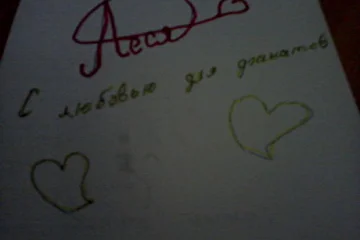 Леся
С любовью для фанатов